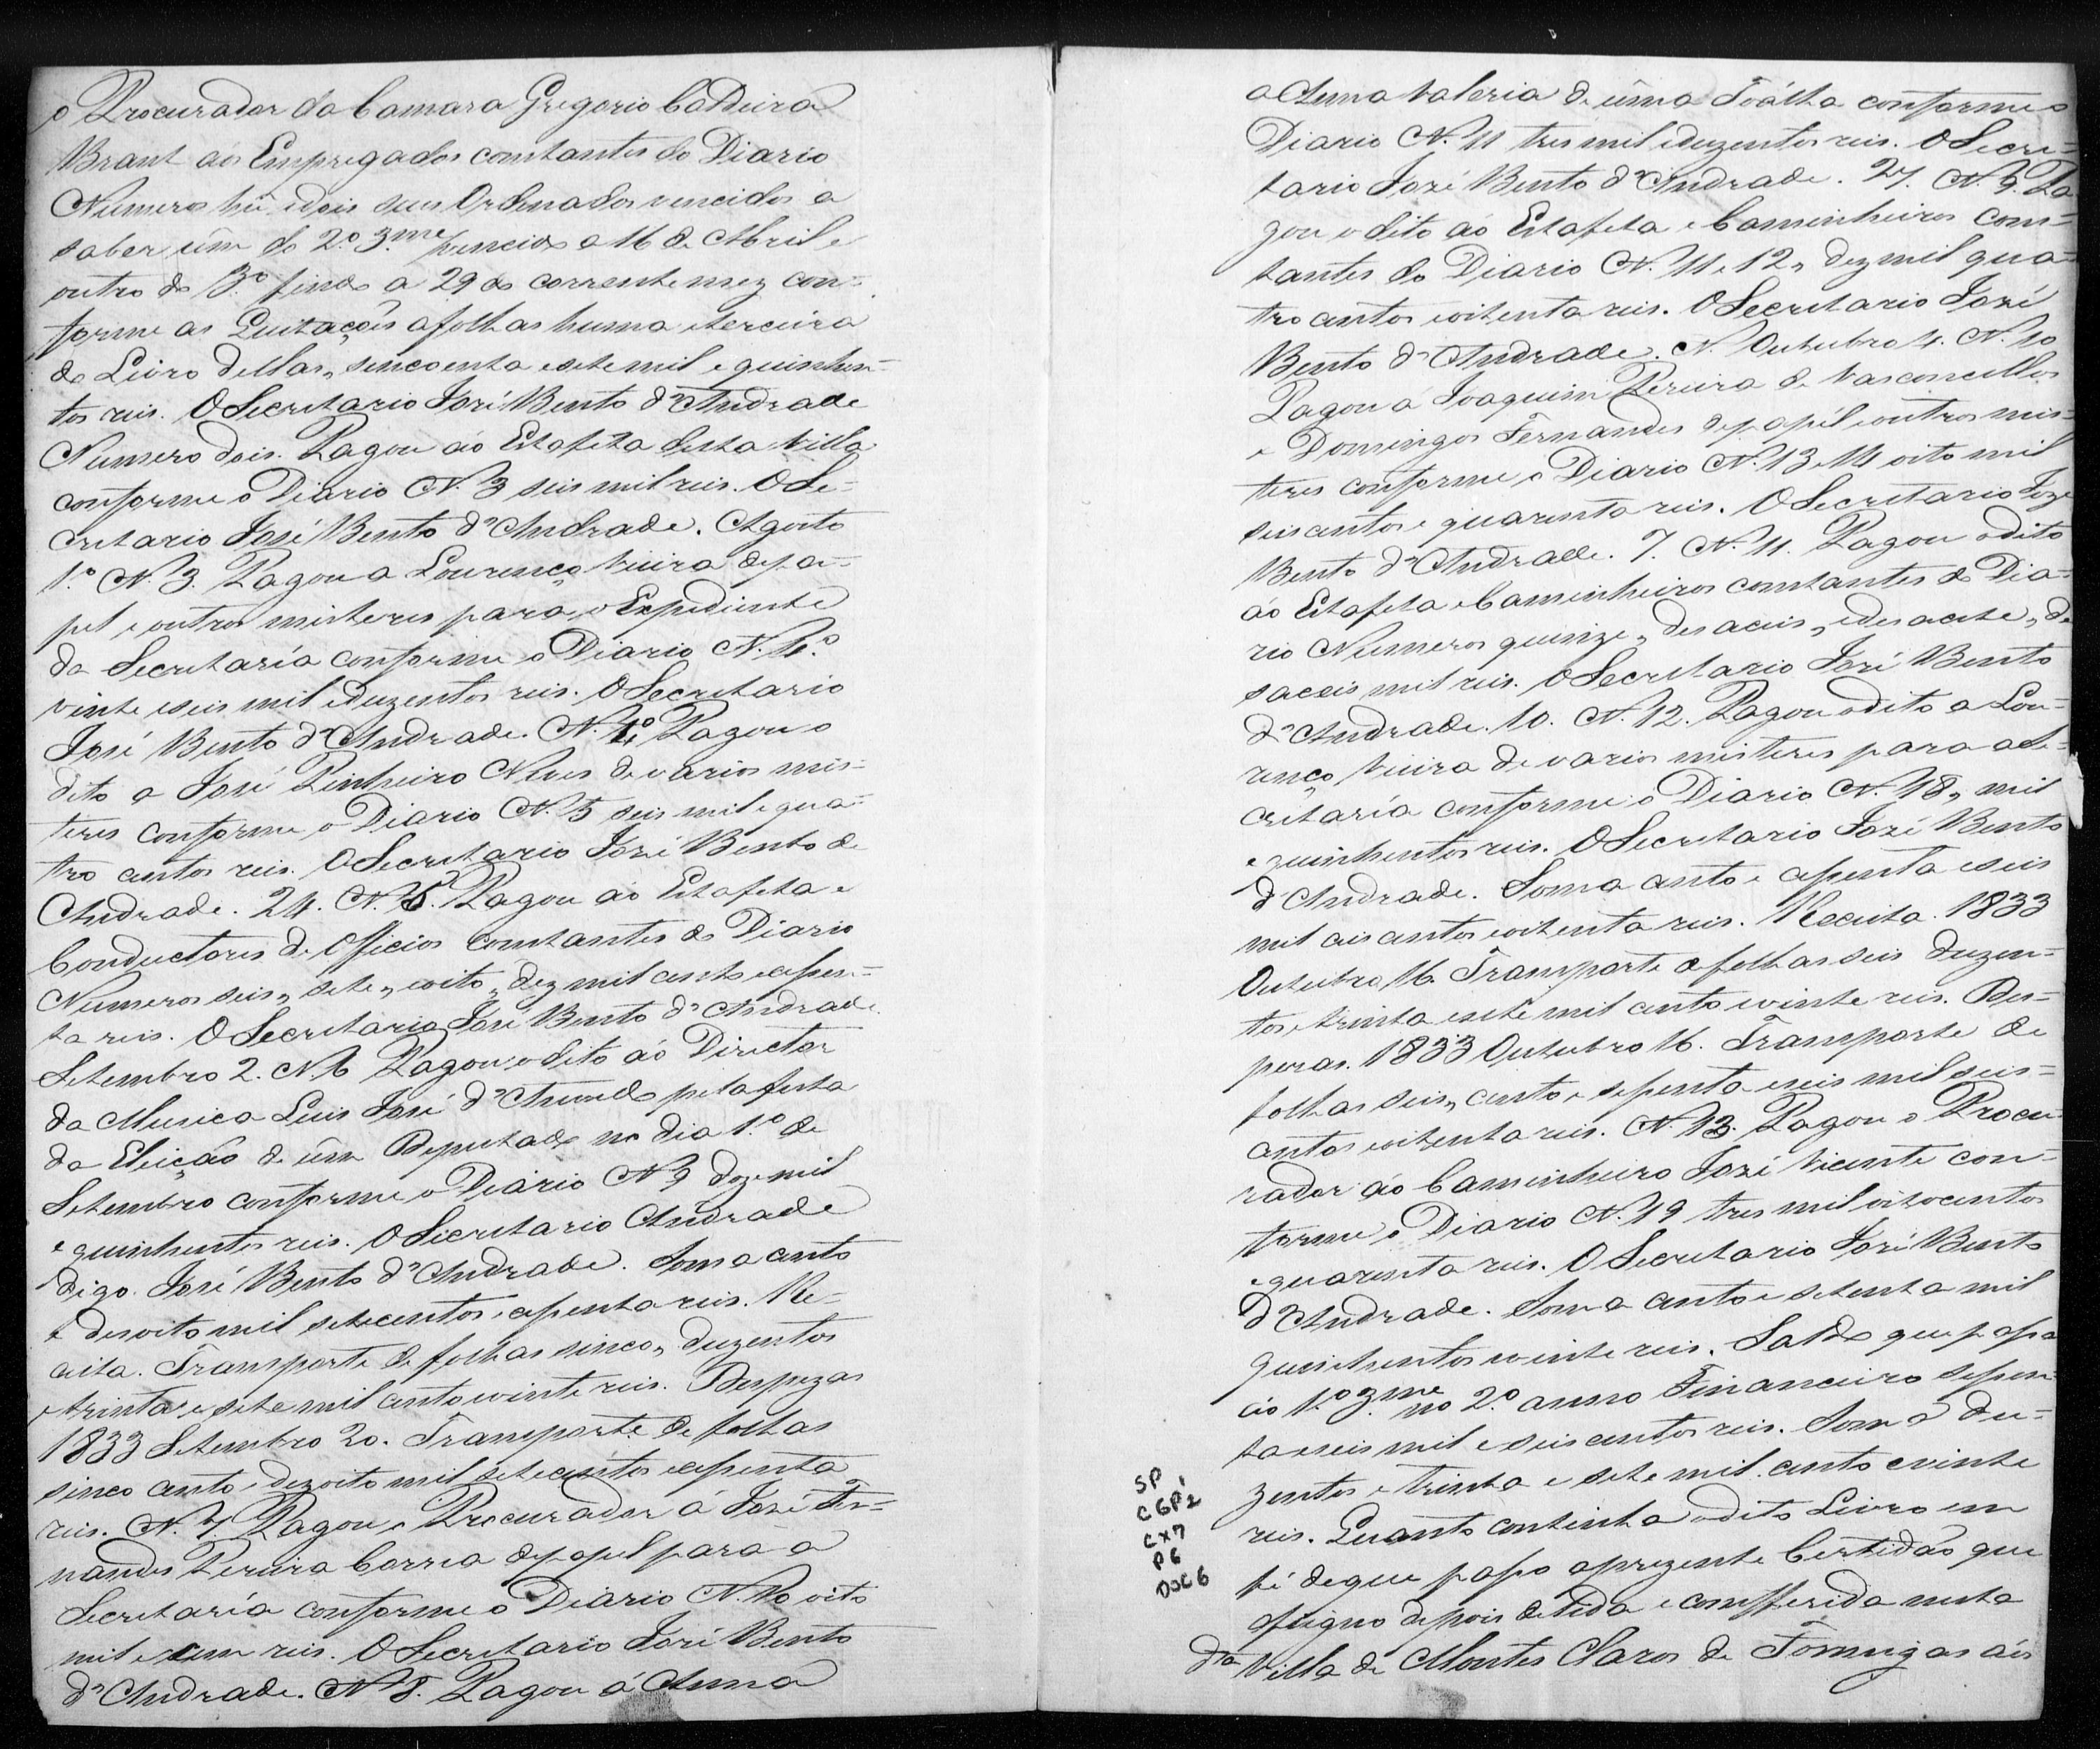 o Procurador da Camara Gregorio Caldeira
Brant aos Empregados constantes do Diario
Numeros hũ edois seus Ordenados vencidos a
saber ûm do 2.º 3.me vencido a 16 de Abril e
outro do 3.º findo a 29 do corrente mez con-
forme as Quitaçoẽs afolhas huma eterceira
do Livro dellas, sincoenta esete mil e quinhen-
tos reis. O Secretario José Bento d'Andrade
Numero dois. Pagou aó Estafeta desta Villa
conforme o Diario N. 3 seis mil reis. O Se-
cretario José Bento d'Andrade. Agosto
1.º N. 3. Pagou a Lourenço Vieira depa-
pel e outros misteres para o Expediente
da Secretaría conforme o Diario N. 4.º
vinte eseis mil eduzentos reis. O Secretario
José Bento d'Andrade. N. 4.º Pagou o
dito a José Pinheiro Neves de varios mis-
teres conforme o Diario N. 5 seis mil e qua-
tro centos reis. O Secretario José Bento de
Andrade. 24. N. 5. Pagou aó Estafeta e
Conductores de Officios constantes do Diario
Numeros seis, sete, eoito, dez mil cento esessen-
ta reis. O Secretario José Bento d'Andrade.
Setembro 2. N. 6 Pagou o dito aó Director
da Musica Luis José d' pela festa
da Eleiçaõ de ûm Deputado no dia 1.º de
Setembro conforme o Diario N. 9 doze mil
e quinhentos reis. O Secretario Andrade
digo José Bento d'Andrade. Soma cento
e desoito mil setecentos esessenta reis. Re-
ceita. Transporte de folhas sinco, duzentos
e trinta e sete mil cento evinte reis. Despezas
1833 Setembro 20. Transporte de folhas
sinco cento, dezoito mil setecentos esessenta
reis. N. 7. Pagou o Procurador á José Fer-
nandes Pereira Correa depapel para a
Secretaría conforme o Diario N. 10 oito
mil e cem reis. O Secretario José Bento
d'Andrade. N. 8. Pagou á Anna
a Anna Valeria de ûma Toálha conforme o
Diario N. 11 tres mil eduzentos reis. O Secre-
tario José Bento d'Andrade. 27. N. 9. Pa-
gou o dito aó Estafeta e Caminheiros cons-
tantes do Diario N. 11 e 12, dez mil qua-
tro centos eoitenta reis. O Secretario José
Bento d'Andrade. N. Outubro 4. N. 10
Pagou a Joaquim Pereira de Vasconcellos
e Domingos Fernandes depapél eoutros mis-
teres conforme o Diario N. 13 e 14 oito mil
seis centos e quarenta reis. O Secretario Joze
Bento d'Andrade. 7. N. 11. Pagou odito
aó Estafeta eCaminheiros constantes do Dia-
rio Numeros quinze, desaceis, edesacete, de
saceis mil reis. O Secretario José Bento
d'Andrade. 10. N. 12. Pagou odito a Lou-
renço Vieira de varios misteres para aSe-
cretaría conforme o Diario N. 18, mil
e quinhentos reis. O Secretario José Bento
d'Andrade. Soma cento e sessenta eseis
mil ceis centos eoitenta reis. Receita. 1833
Outubro 16. Transporte de folhas seis duzen-
tos, etrinta esete mil cento evinte reis. Des-
pezas. 1833 Outubro 16. Transporte de
folhas seis, cento e sessenta eseis mil seis-
centos eoitenta reis. N. 13. Pagou o Procu-
rador aó Caminheiro José Vicente con-
forme o Diario N. 19 tres mil oitocentos
e quarenta reis. O Secretario José Bento
d'Andrade. Soma cento e setenta mil
quinhentos evinte reis. Saldo que passa
aó 1.º 3.me no 2.º anno Financeiro sessen-
ta eseis mil e seis centos reis. Soma du-
zentos e trinta e sete mil cento evinte
reis. Quanto continha odito Livro em
fé deque passo aprezente Certidaõ que
asigno depois delida e comfferida nesta
dta Villa de Montes Claros de Formigas aós
SP 1
CGP2
CX7
P6
DOC 6